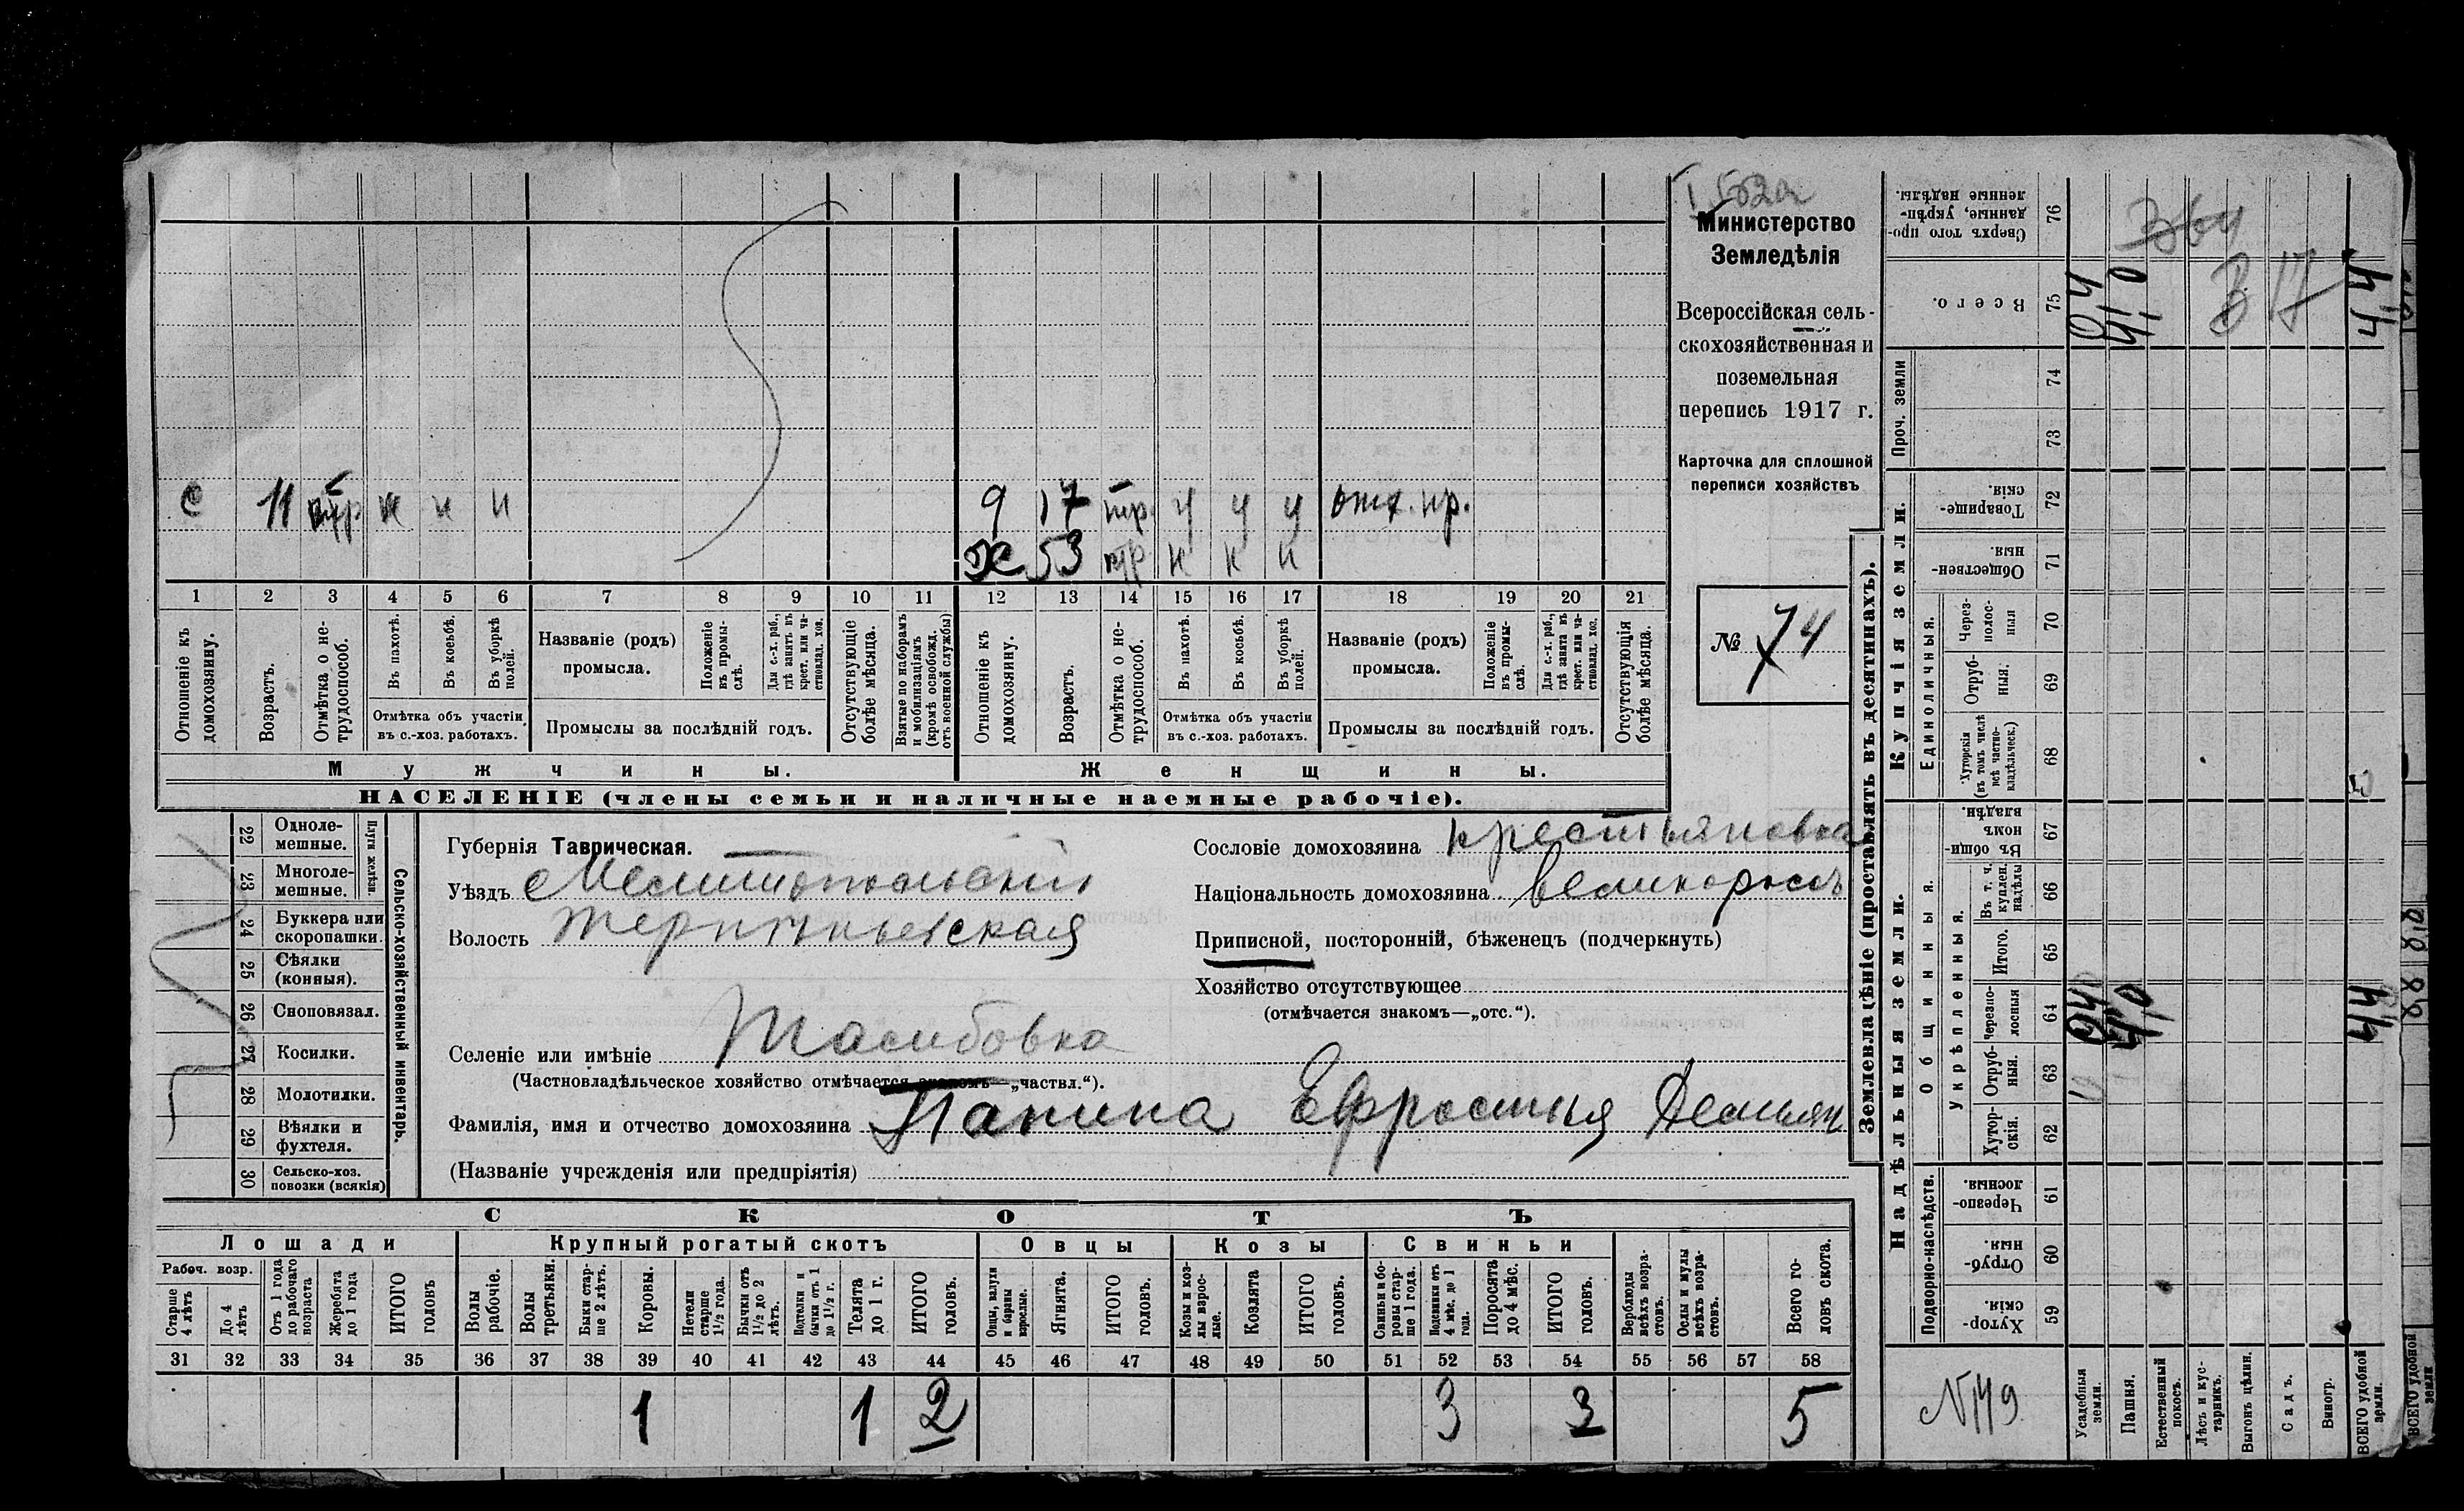 Министерство
Земледѣлія
Всероссійская сель-
скохозяйственная и
поземельная
перепись 1917 г.
Карточка для сплошной
переписи хозяйствъ
№ 74
с 11 н н н
9 17 тр. ч ч ч пр.
ж 53 н н н
1 2 3 4 5 6 7 8 9 10 11 12 13 14 15 16 17 18 19 20 21
Отношеніе къ домохозяину.
Возрастъ.
Отмѣтка о не-трудоспособ.
Въ пахотѣ.
Въ косьбѣ.
Въ уборкѣ полей.
Отмѣтка объ участіи въ с.-хоз. работахъ.
Названіе (родъ) промысла.
Положеніе въ промы-слѣ.
Для с.-х. раб., гдѣ занятъ въ крест. или ча-стновлад. хоз.
Промыслы за послѣдній годъ.
Отсутствующіе болѣе мѣсяца.
Взятые по наборамъ и мобилизаціямъ (кромѣ освобожд. отъ военной службы)
Отношеніе къ домохозяину.
Возрастъ.
Отмѣтка о не-трудоспособ.
Въ пахотѣ.
Въ косьбѣ.
Въ уборкѣ полей.
Отмѣтка объ участіи въ с.-хоз. работахъ.
Названіе (родъ) промысла.
Положеніе въ промы-слѣ.
Для с.-х. раб., гдѣ занята въ крест. или ча-стновлад. хоз.
Промыслы за послѣдній годъ.
Отсутствующія болѣе мѣсяца.
Мужчины. Женщины.
НАСЕЛЕНІЕ (члены семьи и наличные наемные рабочіе).
22 Одноле-мешные.
23 Многоле-мешные.
Плуги желѣзн.
24 Буккера или скоропашки.
25 Сѣялки (конныя).
26 Сноповязал.
27 Косилки.
28 Молотилки.
29 Вѣялки и фухтеля.
30 Сельско-хоз. повозки (всякія)
Сельско-хозяйственный инвентарь.
Губернія Таврическая.
Уѣздъ Мелитопольскій
Волость
Селеніе или имѣніе
(Частновладѣльческое хозяйство отмѣчается знакомъ—„частвл.“).
Фамилія, имя и отчество домохозяина Панина Ефросинья Демьян
(Названіе учрежденія или предпріятія)
Сословіе домохозяина крестьяновка
Національность домохозяина великороссъ
Приписной, посторонній, бѣженецъ (подчеркнуть)
Хозяйство отсутствующее
(отмѣчается знакомъ—„отс.“).
СКОТЪ
Лошади Крупный рогатый скотъ Овцы Козы Свиньи
Рабоч. возр.
Старше 4 лѣтъ
До 4 лѣтъ
Отъ 1 года до рабочаго возраста
Жеребята до 1 года
ИТОГО головъ
Волы рабочіе.
Волы третьяки.
Быки стар-ше 2 лѣтъ.
Коровы.
Нетели старше 1½ года.
Бычки отъ 1½ до 2 лѣтъ.
Подтелки и бычки отъ 1 до 1½ г.
Телята до 1 г.
ИТОГО головъ.
Овцы, валухи и бараны взрослые.
Ягнята.
ИТОГО головъ.
Козы и коз-лы взрос-лые.
Козлята
ИТОГО головъ.
Свиньи и бо-ровы стар-ше 1 года.
Подсвинки отъ 4 мѣс. до 1 года.
Поросята до 4 мѣс.
ИТОГО головъ.
Верблюды всѣхъ возра-стовъ.
Ослы и мулы всѣхъ возра-стовъ.
Всего го-ловъ скота.
31 32 33 34 35 36 37 38 39 40 41 42 43 44 45 46 47 48 49 50 51 52 53 54 55 56 57 58
1 1 2 3 3 5
Землевладѣніе (проставлять въ десятинахъ).
Надѣльныя земли. Купчія земли. Проч. земли
Подворно-наслѣдств.
Общинныя.
Укрѣпленныя.
Единоличныя.
Хутор-скія. 59
Отруб-ныя. 60
Черезпо-лосныя. 61
Хутор-скія. 62
Отруб-ныя. 63
Черезпо-лосныя 64
Итого. 65
Въ т. ч. куплен. надѣлы 66
Въ общи-номъ владѣн. 67
Хуторскія (въ томъ числѣ всѣ частно-владѣльческ.) 68
Отруб-ныя. 69
Через-полос-ныя 70
Обществен-ныя. 71
Товарище-скія. 72
73
74
Всего. 75
Сверхъ того про-данные, укрѣп-ленные надѣлы. 76
Усадебныя земли.
Пашня.
Естественный покосъ.
Лѣсъ и кус-тарникъ.
Выгонъ цѣлин.
Садъ.
Виногр.
ВСЕГО удобной земли.
ВСЕГО удобной земли
0,4 4,0 4,4
0,4 4,0 4,4
В 17
N 149